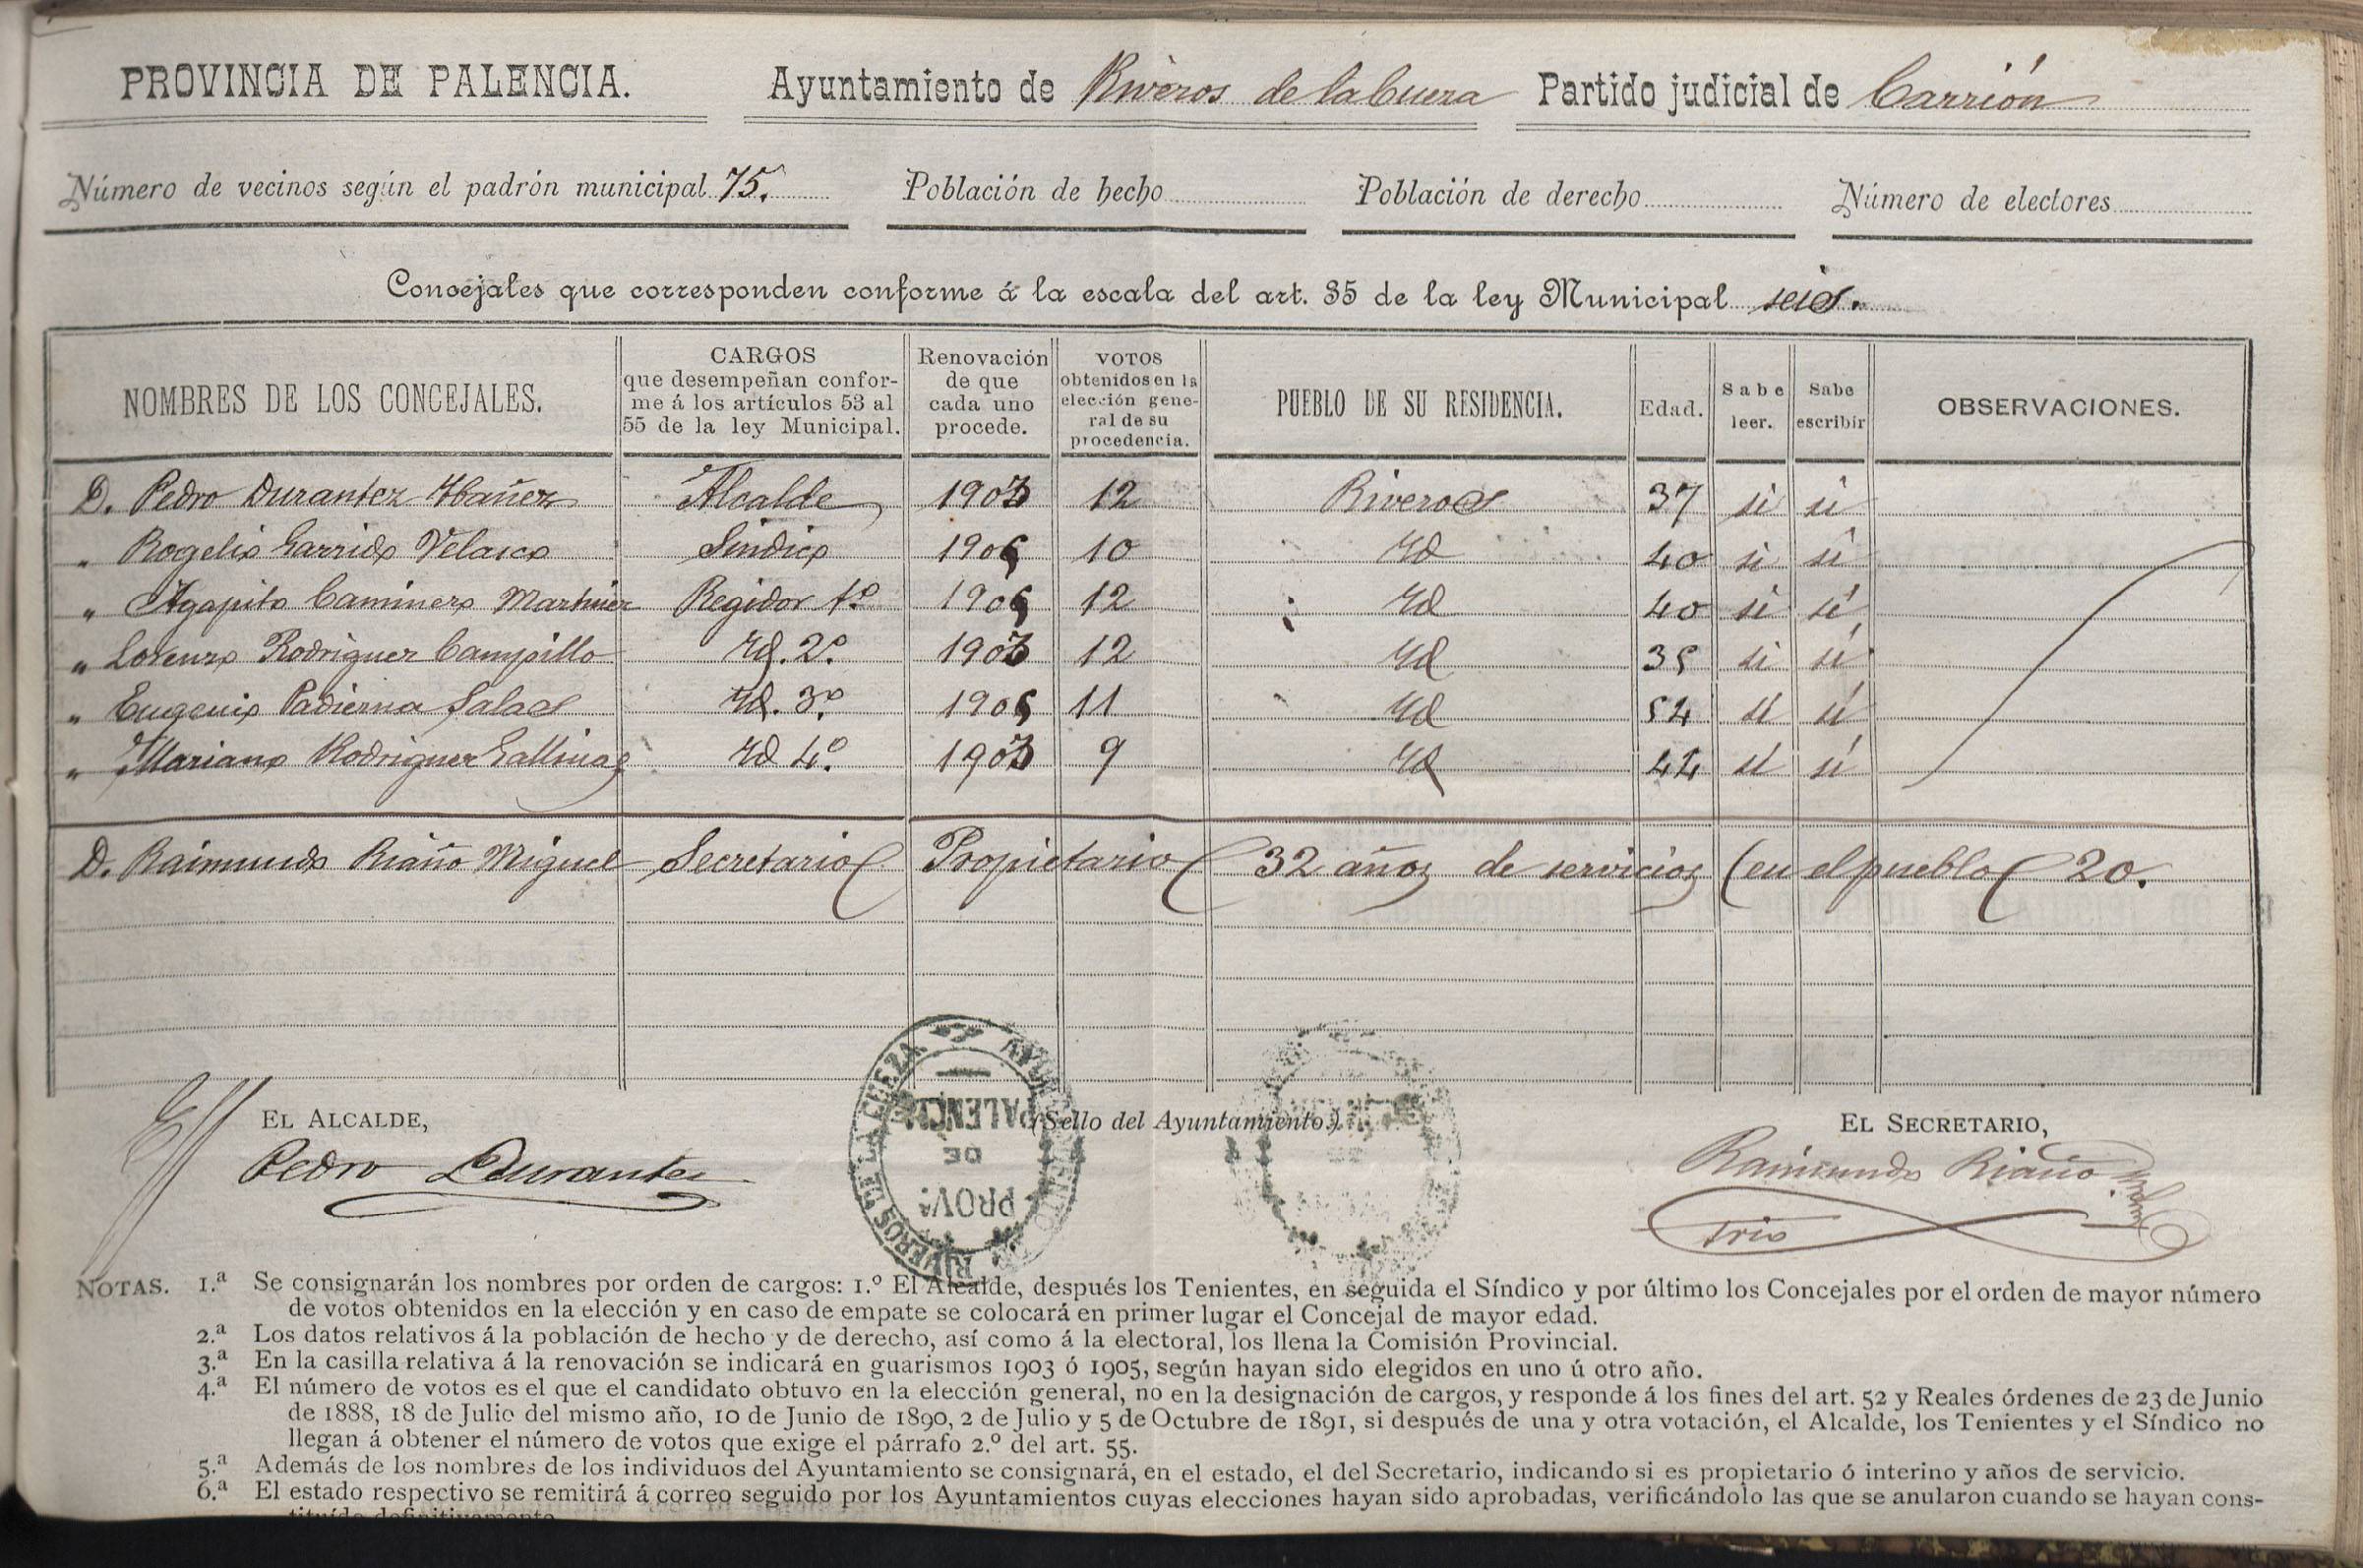 PROVINCIA DE PALENCIA. Ayuntamiento de Riveros de la Cueza Partido judicial de Carrión
Número de vecinos según el padrón municipal 75. Población de hecho Población de derecho Número de electores
Concejales que corresponden conforme á la escala del art. 35 de la ley Municipal seis.
NOMBRES DE LOS CONCEJALES. CARGOS que desempeñan conforme á los artículos 53 al 55 de la ley Municipal. Renovación de que cada uno procede. VOTOS obtenidos en la elección general de su procedencia. PUEBLO DE SU RESIDENCIA. Edad. Sabe leer. Sabe escribir OBSERVACIONES.
D. Pedro Durantez Ibañez Alcalde 1903 12 Riveros 37 si si
" Rogelio Garrido Velasco Sindico 1905 10 Id 40 si si
" Agapito Caminero Martinez Regidor 1.º 1905 12 Id 40 si si
" Lorenzo Rodriguez Campillo Id. 2.º 1903 12 Id 35 si si
" Eugenio Padierna Salas Id. 3.º 1905 11 Id 54 si si
" Mariano Rodriguez Gallinas Id 4.º 1903 9 Id 44 si si
D. Raimundo Riaño Miguel Secretario Propietario 32 años de servicios (en el pueblo 20.
EL ALCALDE, (Sello del Ayuntamiento.) EL SECRETARIO,
Pedro Durantez Raimundo Riaño
AYUNTAMIENTO RIVEROS DE LA CUEZA
PROVª DE PALENCIA
NOTAS. 1.ª Se consignarán los nombres por orden de cargos: 1.º El Alcalde, después los Tenientes, en seguida el Síndico y por último los Concejales por el orden de mayor número
de votos obtenidos en la elección y en caso de empate se colocará en primer lugar el Concejal de mayor edad.
2.ª Los datos relativos á la población de hecho y de derecho, así como á la electoral, los llena la Comisión Provincial.
3.ª En la casilla relativa á la renovación se indicará en guarismos 1903 ó 1905, según hayan sido elegidos en uno ú otro año.
4.ª El número de votos es el que el candidato obtuvo en la elección general, no en la designación de cargos, y responde á los fines del art. 52 y Reales órdenes de 23 de Junio
de 1888, 18 de Julio del mismo año, 10 de Junio de 1890, 2 de Julio y 5 de Octubre de 1891, si después de una y otra votación, el Alcalde, los Tenientes y el Síndico no
llegan á obtener el número de votos que exige el párrafo 2.º del art. 55.
5.ª Además de los nombres de los individuos del Ayuntamiento se consignará, en el estado, el del Secretario, indicando si es propietario ó interino y años de servicio.
6.ª El estado respectivo se remitirá á correo seguido por los Ayuntamientos cuyas elecciones hayan sido aprobadas, verificándolo las que se anularon cuando se hayan cons-
tituído definitivamente.